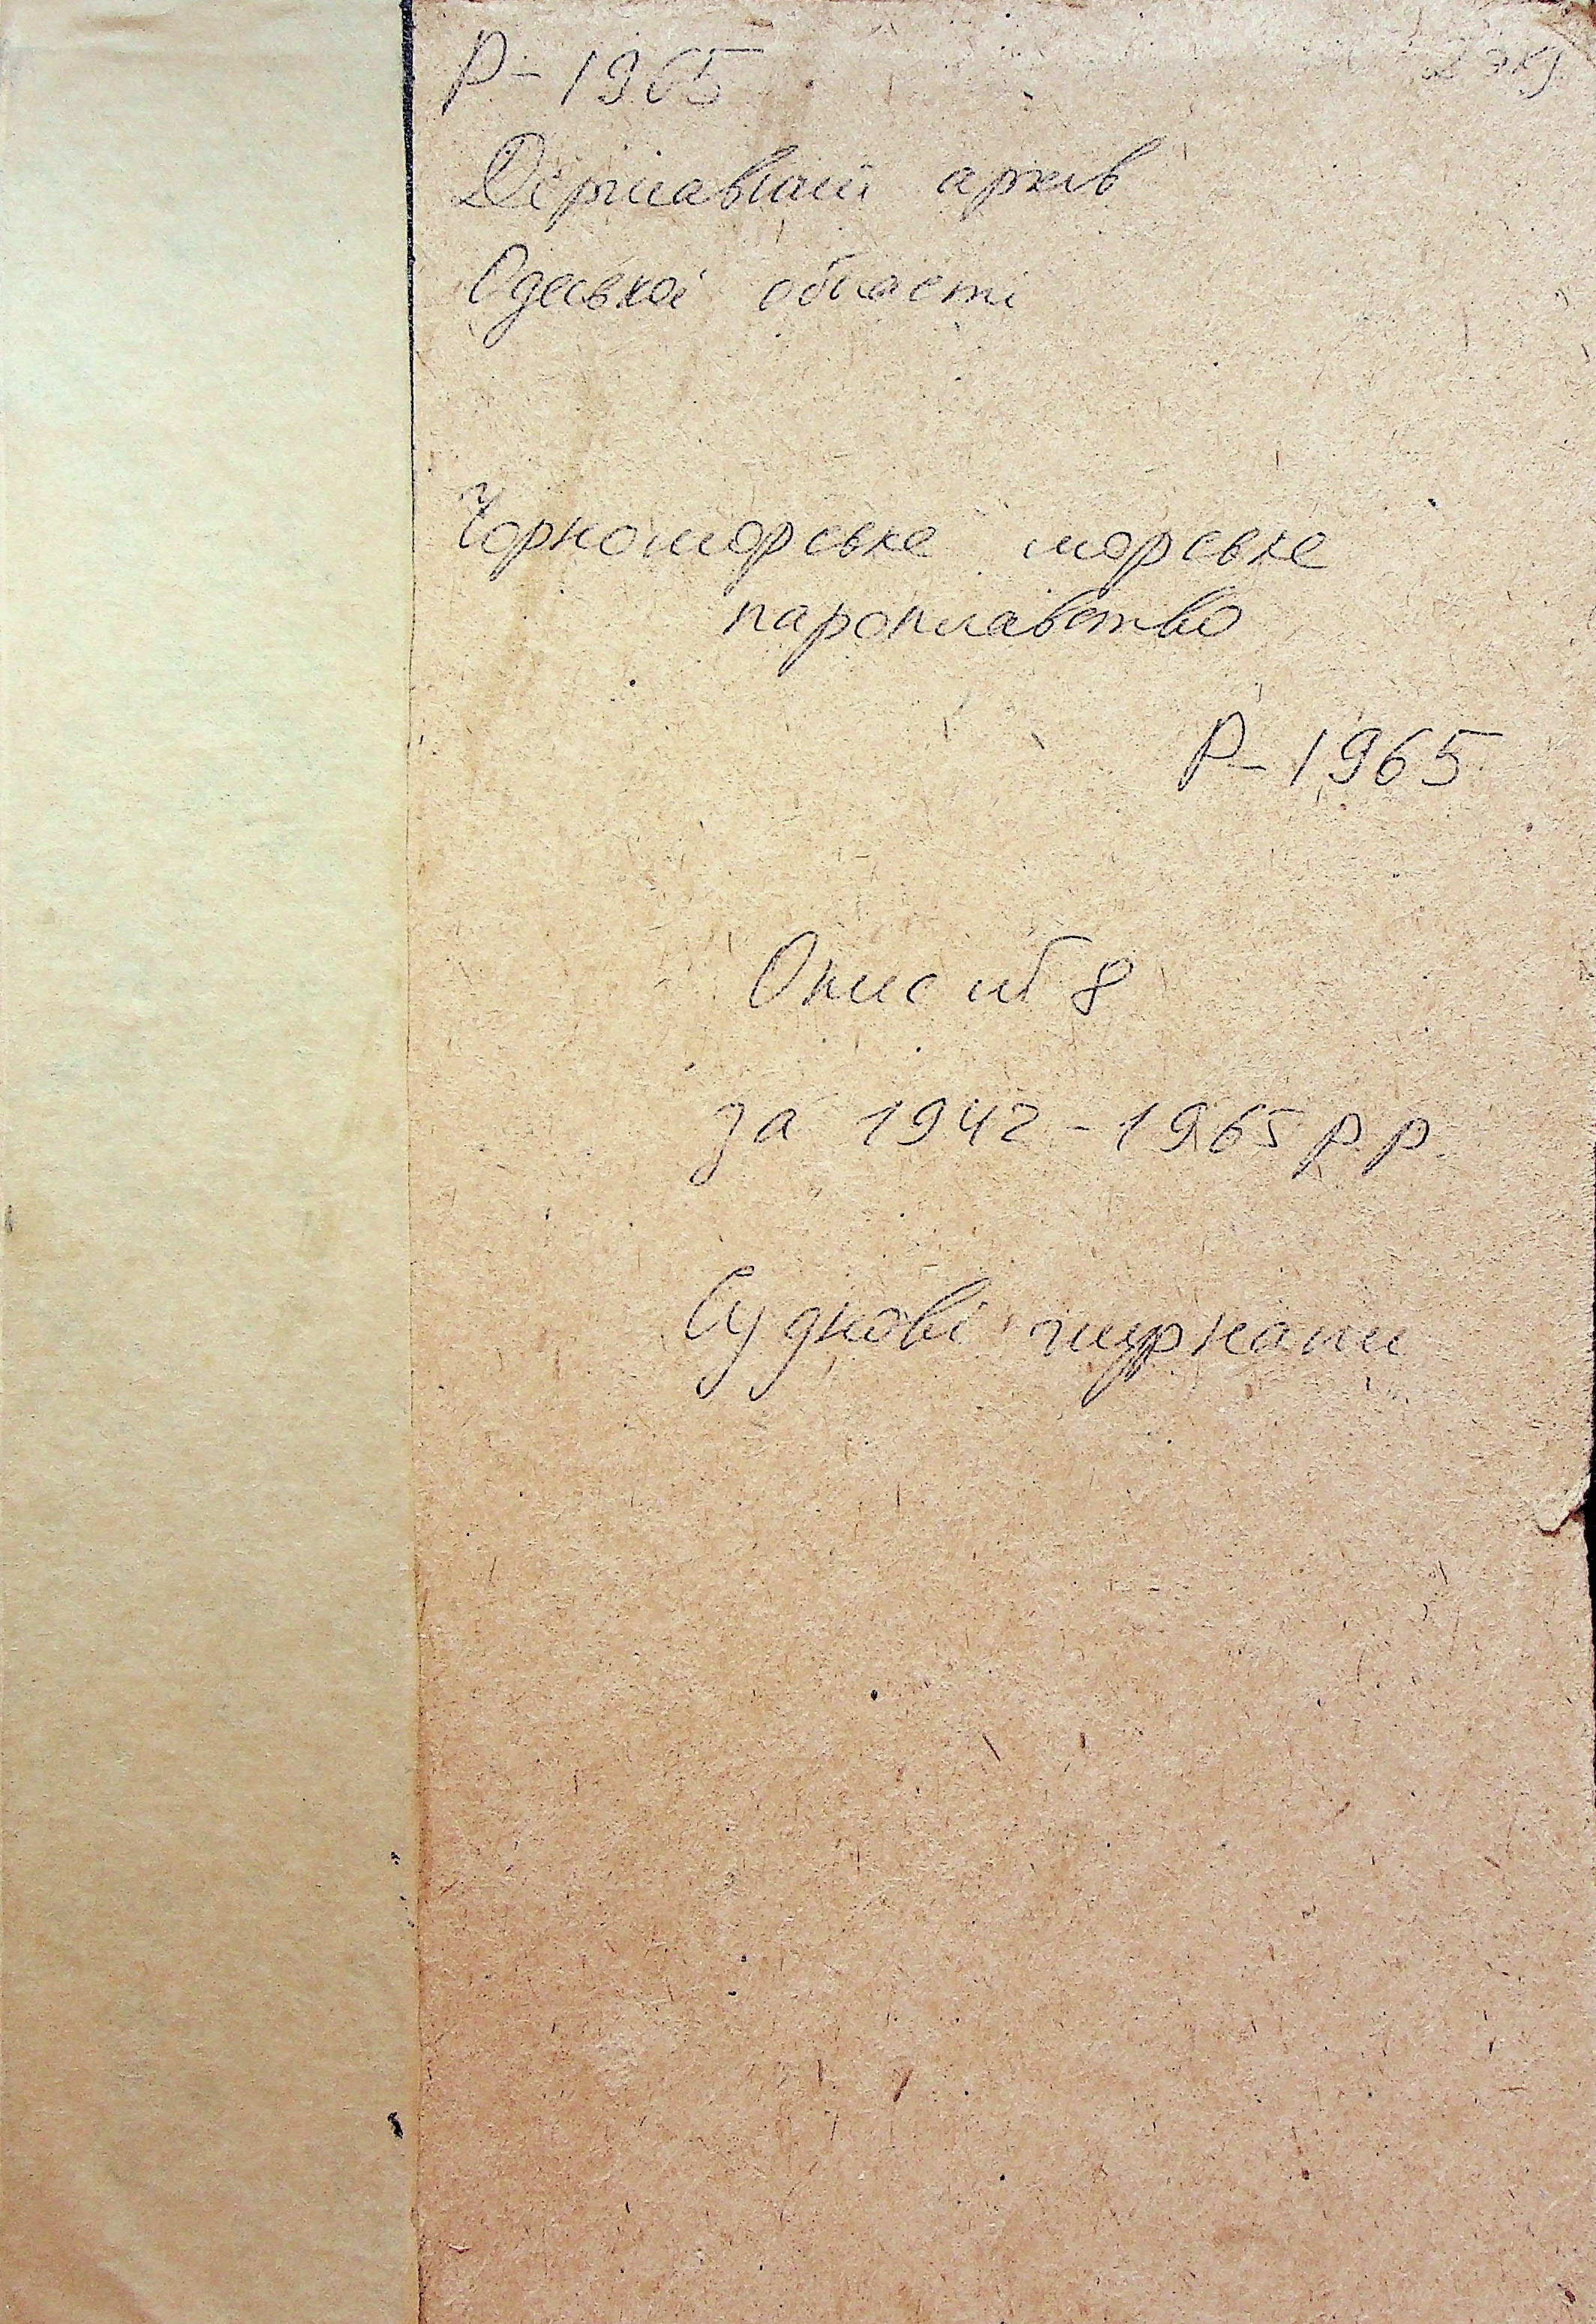 Р-1965
2 экз
Державний архів
Одеської області
Чорноморське морське
пароплавство
Р-1965
Опис № 8
за 1942-1965 р.р.
Суднові журнали